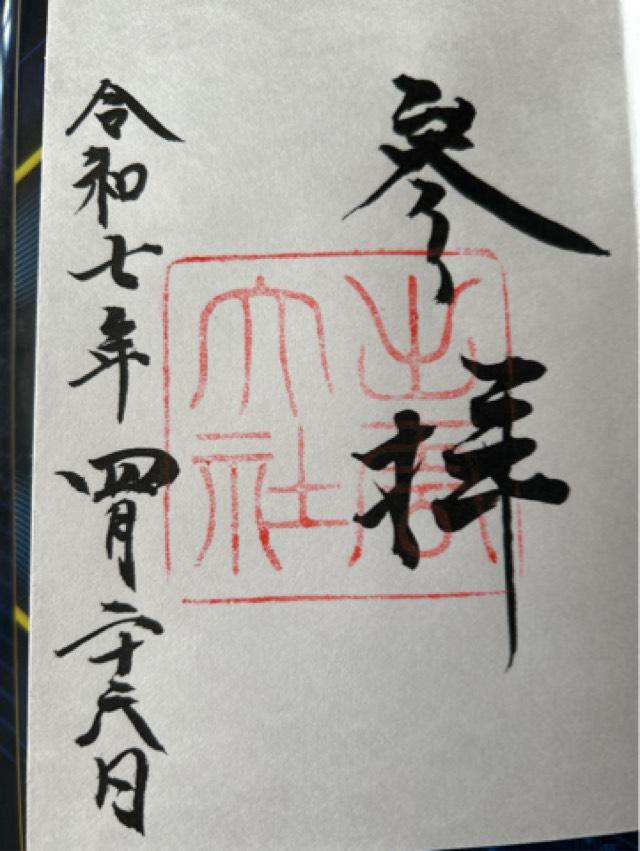 参拝
出雲
大社
令和七年四月二十六日